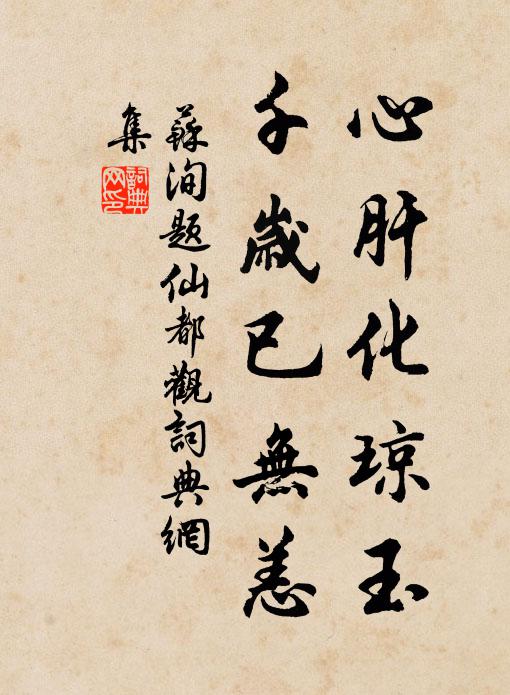 心肝化琼玉
千歲已無恙
蘇洵題仙都觀詞典網
集
詞典
网印